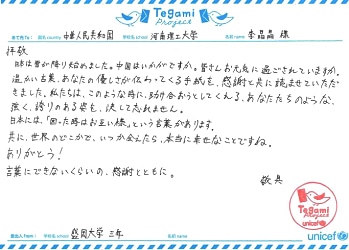 Tegami Project
あて先 to: 国名 country 中華人民共和国 学校名 school 河南理工大学 名前 name 李晶晶 様
拝啓
日本は雪が降り始めました。中国はいかがですか。皆さんお元気に過ごされていますか。
温かい言葉、あなたの優しさが伝わってくる手紙を、感謝と共に読ませていただ
きました。私たちは、このような時に助け合おうとしてくれる、あなたたちのような、
強く、誇りのある姿も、決して忘れません。
日本には、「困った時はお互い様」という言葉があります。
共に、世界のどこかで、いつか会えたら、本当に幸せなことですね。
ありがとう!
言葉にできないくらいの、感謝とともに。
敬具
Tegami Project
unicef
差出人 from: 学校名 school 盛岡大学 三年 名前 name
unicef